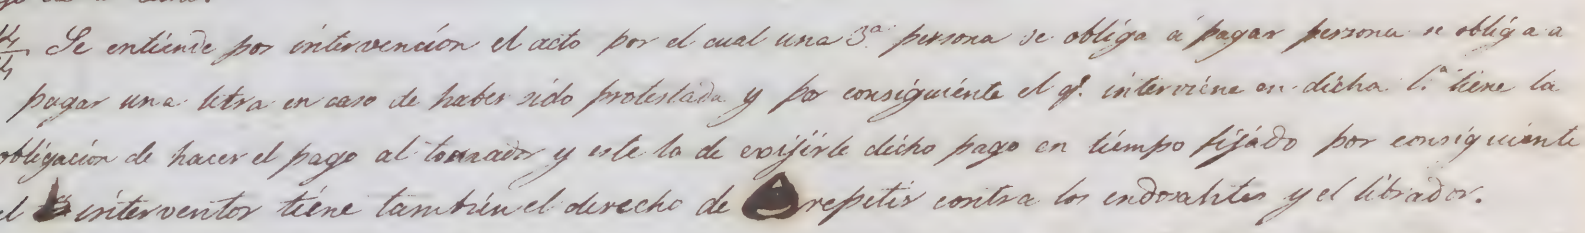 Se entiende por intervención el acto por el cual una 3ª persona se obliga á pagar persona se obliga a
pagar una letra en caso de haber sido protestada y por consiguiente el q.e interviene en dicha l.a tiene la
obligación de hacer el pago al tomador y este la de exijirle dicho pago en tiempo fijado por consiguiente
el interventor tiene también el derecho de repetir contra los endosantes y el librador.